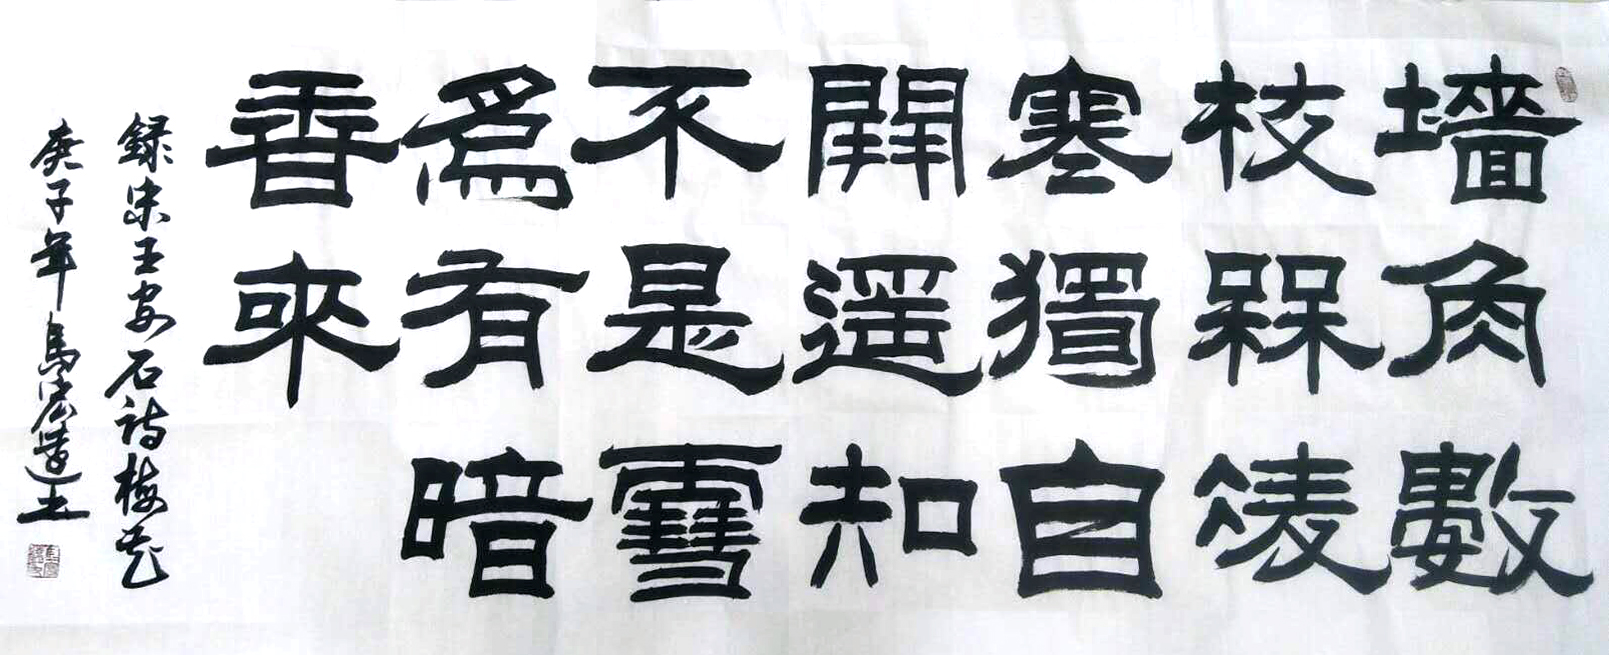 墻角數
枝楳凌
寒獨自
開遥知
不是雪
爲有暗
香來
録宋王安石詩梅花
庚子年馬